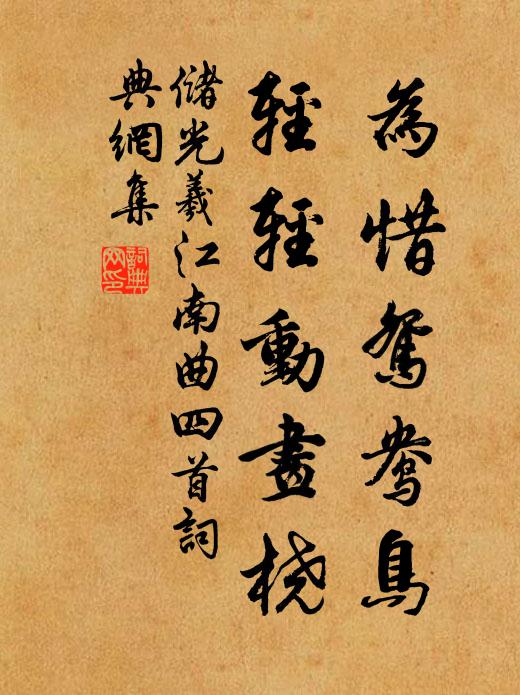 為惜鴛鴦鳥
輕輕動畫橈
儲光羲江南曲四首詞
典網集
詞典
网印